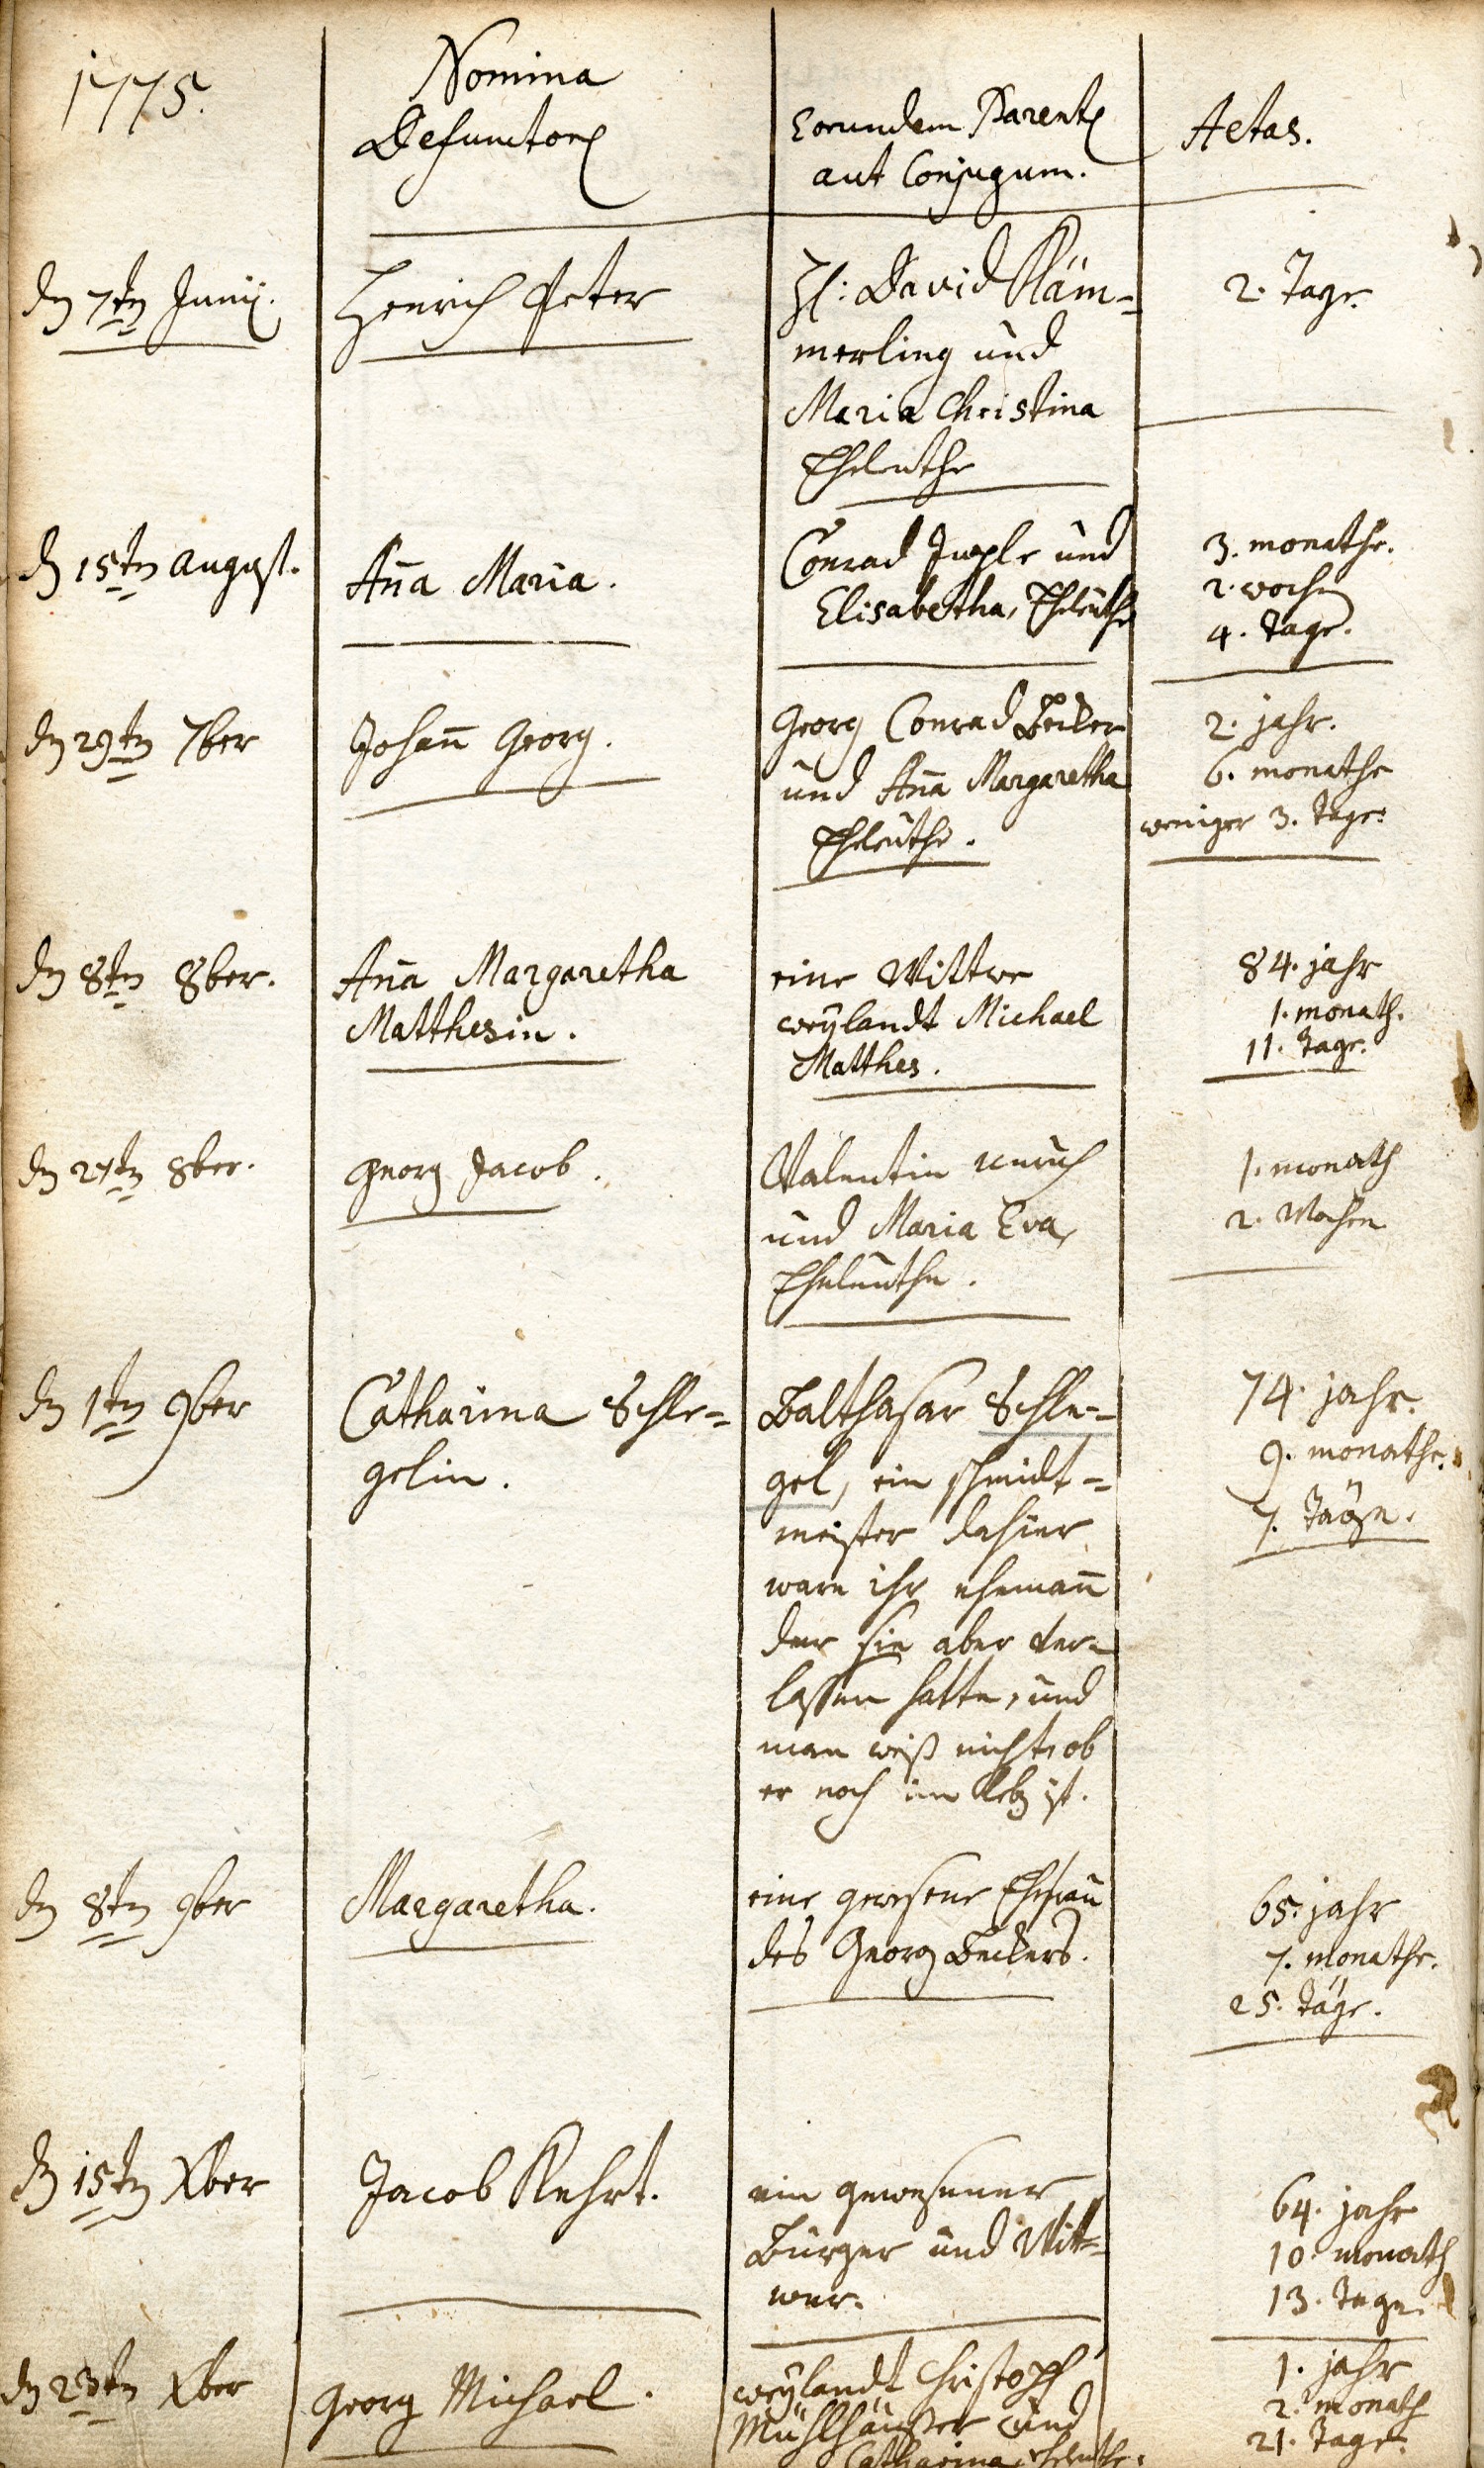 1775.
Nomina
Defunctor
Eorundem Parent
aut Conjugum.
Aetas.
dn 7tn Junij.
Henrich Peter
H: David Käm-
merling und
Maria Christina
Eheleuthe
2. Tage.
dn 15tn August.
Aña Maria.
Conrad und
Elisabetha, Eheleuthe
3. monathe.
2. wochn
4. Tage.
dn 29tn 7ber
Johañ Georg.
Georg Conrad Becker
und Aña Margaretha
Eheleuthe.
2. jahr.
6. monathe
weniger 3. Tage.
dn 8tn 8ber.
Aña Margaretha
Matthesin.
eine Wittwe
weylandt Michael
Matthes.
84. jahr
1. monath.
11. Tage.
dn 27tn 8ber.
Georg Jacob.
Valentin
und Maria Eva,
Eheleuthe.
1. monath
2. Wochen
dn 1tn 9ber
Catharina Schle-
gelin.
Balthasar Schle-
gel, ein schmidt-
meister dahier
ware ihr ehemañ
der sie aber ver-
lassen hatte, und
man weiß nicht, ob
er noch im Lebn ist.
74. jahr.
9. monathe.
7. Täge.
dn 8tn 9ber
Margaretha.
eine gewesene Ehefrau
des Georg Beckers.
65. jahr
7. monathe.
25. Täge.
dn 15tn Xber
Jacob Kehrt.
ein gewesener
Burger und Wit-
wer.
64. jahr
10. monath
13. Tage.
dn 23tn Xber
Georg Michael.
weylandt Christoph
Mühlhäußer und
Catharina, eheleuthe.
1. jahr
2. monath
21. Tage.